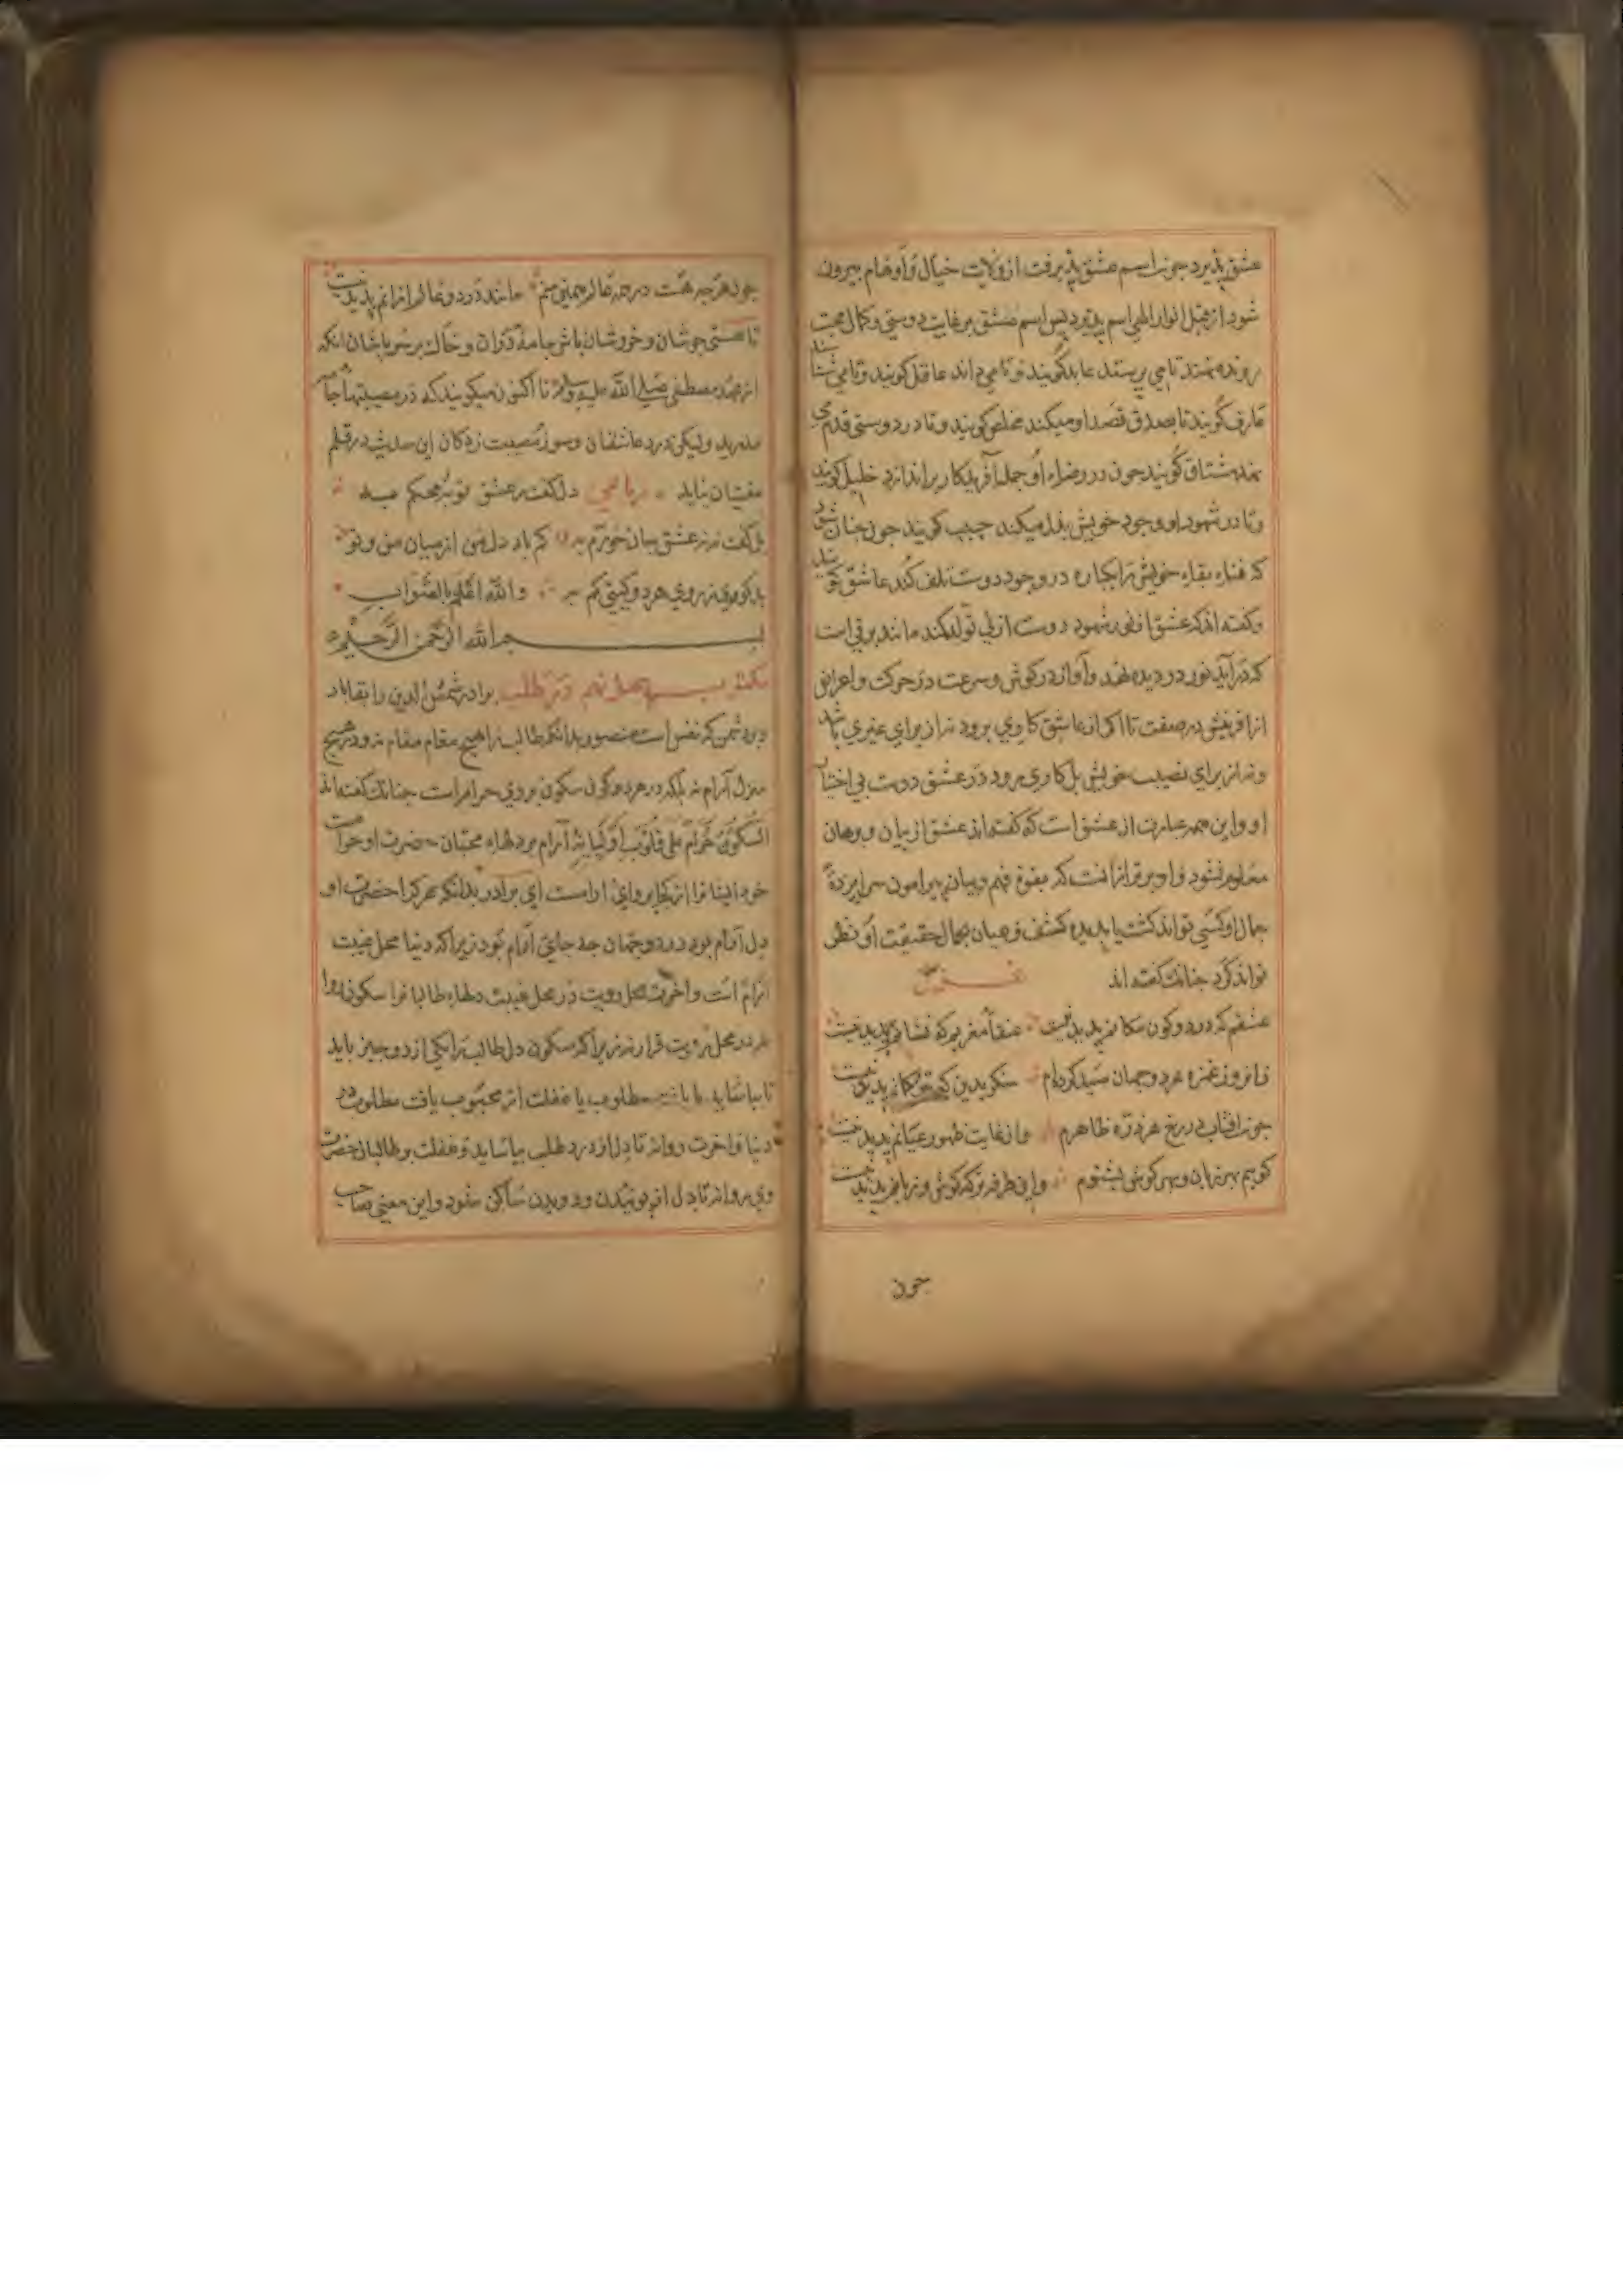 عشق پذیرد چون اسم عشق پذیرفت از ولایت خیال و اوهام بیرون
شود از قبل انوار الهی اسم پذیرد پس اسم عشق بر غایت دوستی و کمال محبت
روند نهند تا می پرستد عابد گویند و تا می داند عاقل گویند و تا می شناسد
عارف گویند تا بصدق قصد او میکند مخلص گویند و تا در دوستی قدم می
نهد مشتاق گویند چون در رضاء او جمله آفریدکار براندازد خلیل گویند
و تا در شهود او وجود خویش بذل میکند حبیب گویند چون چنان شود
که فناء بقاء خویش را یکباره در وجود دوست تلف کند عاشق گویند
و گفته اند که عشق از نور شهود دوست ازلی تولد کند مانند برقی است
که درآید نور در دیده نهد و آواز در گوش و سرعت در حرکت و اعراض
از آفرینش در صفت تا اگر از عاشق کاری برود نه از برای غیری باشد
و نه از برای نصیب خویش بل کاری برود در عشق دوست بی اختیار
او و این همه عبارت از عشق است که گفته اند عشق از بیان و برهان
معلوم نشود و او برتر از آنست که بقوة فهم و بیان پیرامون سراپرده
جمال او کسی تواند گشت یا بدیده کشف و عیان بجمال حقیقت او نظر
تواند کرد چنانک گفته اند
عشقم که در دو کون مکانم پدید نیست عنقاء مغربم که نشانم پدید نیست
ز ابرو و غمزه هر دو جهان صید کرده ام منگر بدین که تیر و کمانم پدید نیست
چون آفتاب در رخ هر ذره ظاهرم و از غایت ظهور عیانم پدید نیست
گویم بهر زبان و بهر گوش بشنوم و این طرفه تر که گوش و زبانم پدید نیست
چون
چون هر چه هست در همه عالم همه منم مانند در دو عالم از آنم پدید نیست
تا هستی جوشان و خروشان باش جامه دران و خاک بر سر پاشان آنکه
از عهد مصطفی صلی الله علیه وسلم تا اکنون میگویند که در مصیبتها جامه
مدرید ولیکن درد عاشقان و سوز مصیبت زدگان این حدیث در قلم
مفتیان نیاید رباعی دل گفت در عشق تو
بل گفت نه ز عشق کم باد دل من از میان من و تو
والله اعلم بالصواب
بسم الله الرحمن الرحیم
مکتوب چهل نهم در طلب برادر شمس الدین را بقا باد
بر دشمن که نفس است منصور بدانکه طالب را هیچ مقام مقام نه و در هیچ
منزل آرام نه بلکه در هر دو کون سکون بر وی حرام است چنانک گفته اند
السکون حرام علی قلوب اولیائه آرام بر دلهاء محبان حضرت او حرام است
خود اینها را از کجا پروای آرامست ای برادر بدانکه هر کرا حضرت او
دل آرام بود در دو جهان چه جای آرام بود زیرا که دنیا محل غیبت
آرام است و آخرت محل رویت در محل غیبت دلهاء طالبان را سکون نه روا
در محل رویت قرار نه زیرا که سکون دل طالب را یکی از دو چیز باید
تا بیاساید یا یافت مطلوب یا غفلت از محبوب یافت مطلوب در
دنیا و آخرت روا نه تا دل از درد طلب بیاساید و غفلت بر طالبان حضرت
وی روا نه تا دل از پوئیدن و دویدن ساکن شود و این معنی صاحب